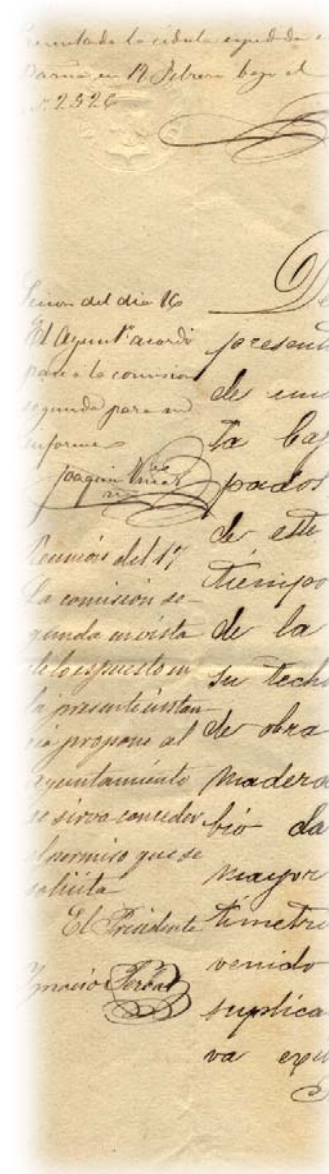 Presentada la cédula expedida e
Parma en 12 Febrero bajo el
nº. 2.526
Sesion del dia 16
El Ayunt.º acordó
pase a la comision
segunda para su
informe
Joaquin
Reunión del 17
La comisión se-
gunda en vista
de lo espuesto en
la presente instan-
cia propone al
Ayuntamiento
se sirva conceder
el permiso que se
solicita
El Presidente
Ignacio
De
present
de una
ta baj
pados
de este
tiempo
de la
su tech
de obra
madera
bió da
mayor
timetro
venido
suplica
va